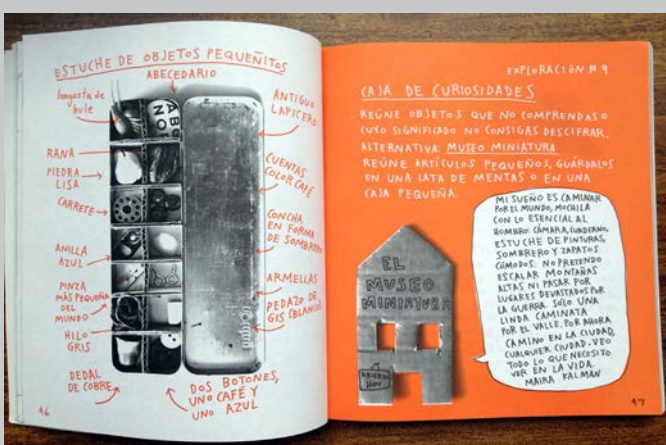 ESTUCHE DE OBJETOS PEQUEÑITOS
ABECEDARIO
langosta de
hule
RANA
PIEDRA
LISA
CARRETE
ANILLA
AZUL
PINZA
MÁS PEQUEÑA
DEL
MUNDO
HILO
GRIS
DEDAL
DE COBRE
DOS BOTONES,
UNO CAFÉ Y
UNO AZUL
ANTIGUO
LAPICERO
CUENTAS
COLOR CAFÉ
CONCHA
EN FORMA
DE SOMBRERO
ARMELLAS
PEDAZO DE
GIS (BLANCO)
46
EXPLORACIÓN #9
CAJA DE CURIOSIDADES
REÚNE OBJETOS QUE NO COMPRENDAS O
CUYO SIGNIFICADO NO CONSIGAS DESCIFRAR.
ALTERNATIVA: MUSEO MINIATURA.
REÚNE ARTÍCULOS PEQUEÑOS, GUÁRDALOS
EN UNA LATA DE MENTAS O EN UNA
CAJA PEQUEÑA.
EL
MUSEO
MINIATURA
ABIERTO
HOY
MI SUEÑO ES CAMINAR
POR EL MUNDO, MOCHILA
CON LO ESENCIAL AL
HOMBRO: CÁMARA, CUADERNO,
ESTUCHE DE PINTURAS,
SOMBRERO Y ZAPATOS
CÓMODOS. NO PRETENDO
ESCALAR MONTAÑAS
ALTAS NI PASAR POR
LUGARES DEVASTADOS POR
LA GUERRA. SÓLO UNA
LINDA CAMINATA
POR EL VALLE. POR AHORA
CAMINO EN LA CIUDAD,
CUALQUIER CIUDAD. VEO
TODO LO QUE NECESITO
VER EN LA VIDA.
MAIRA KALMAN
47